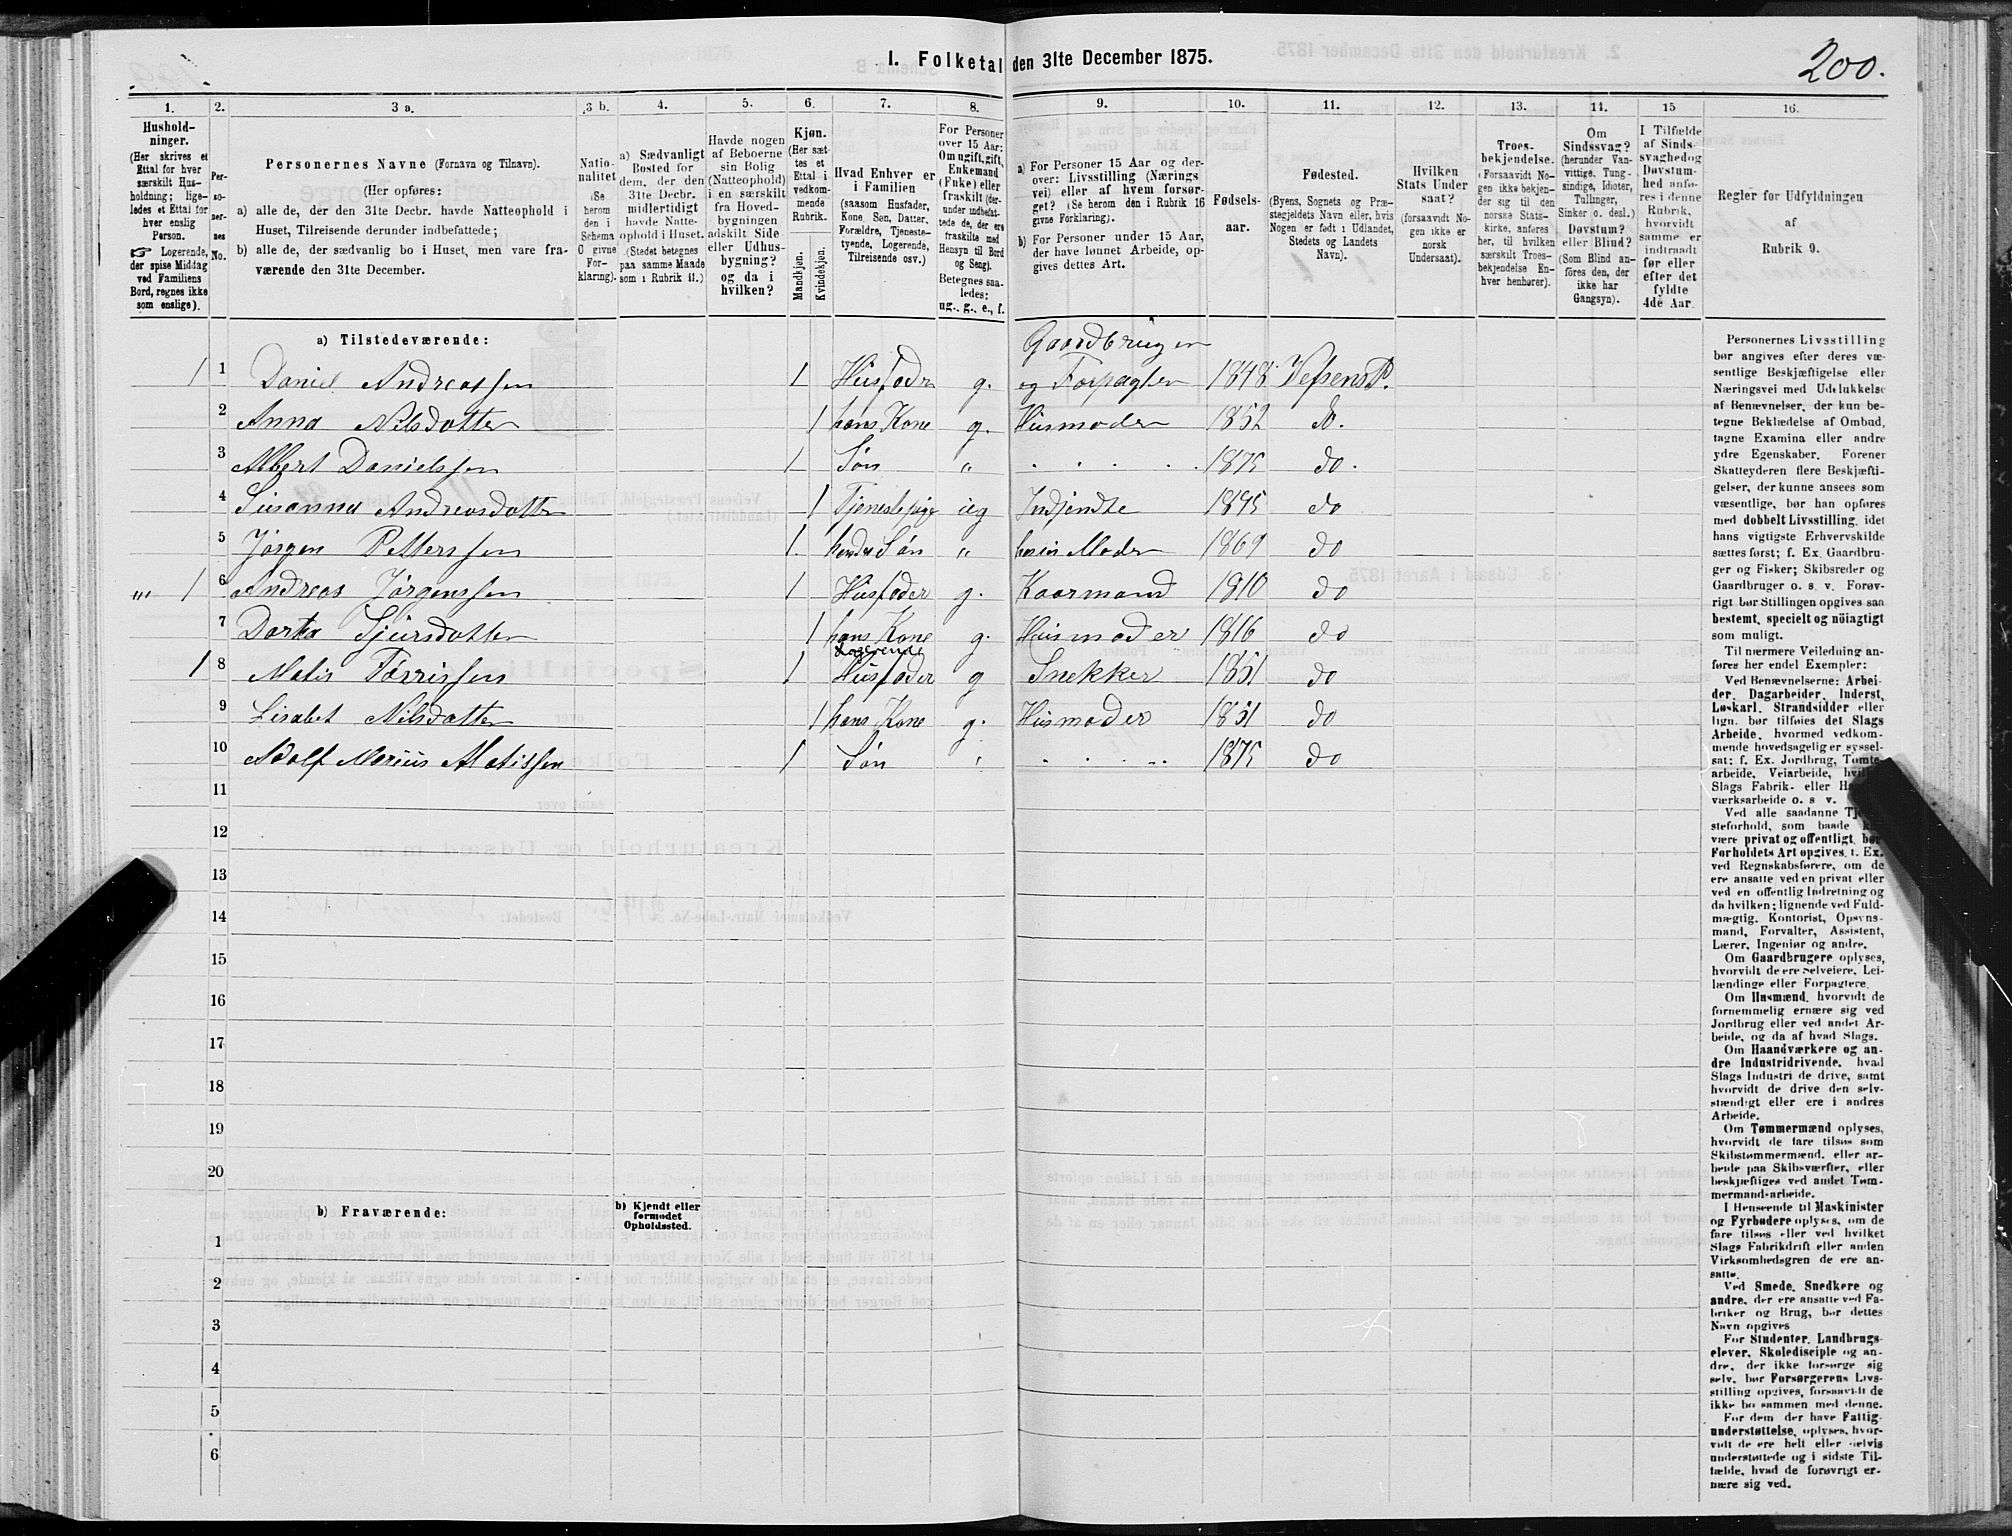 I. Folketal den 31te December 1875.
200.
1. 2. 3 a. 3 b. 4. 5. 6. 7. 8. 9. 10. 11. 12. 13. 14. 15 16.
Hushold-
ninger.
(Her skrives et
Ettal for hver
særskilt Hus-
holdning; lige-
ledes et Ettal for
hver enslig
Person.
☞ Logerende,
der spise Middag
ved Familiens
Bord, regnes ikke
som enslige).
Per-
so-
ner-
nes
No.
Personernes Navne (Fornavn og Tilnavn).
(Her opføres:
a) alle de, der den 31te Decbr. havde Natteophold i
Huset, Tilreisende derunder indbefattede;
b) alle de, der sædvanlig bo i Huset, men vare fra-
værende den 31te December.
Natio-
nalitet
(Se
herom
den i
Schema
O givne
For-
klaring).
a) Sædvanligt
Bosted for
dem, der den
31te Decbr.
midlertidigt
havde Natte-
ophold i Huset.
(Stedet betegnes
paa samme Maade
som i Rubrik 11.)
Havde nogen
af Beboerne
sin Bolig
(Natteophold)
i en særskilt
fra Hoved-
bygningen
adskilt Side
eller Udhus-
bygning?
og da i
hvilken?
Kjøn.
(Her sæt-
tes et
Ettal i
vedkom-
mende
Rubrik.
Mandkjøn.
Kvindekjøn.
Hvad Enhver er
i Familien
(saasom Husfader,
Kone, Søn, Datter,
Forældre, Tjeneste-
tyende, Logerende,
Tilreisende osv.)
For Personer
over 15 Aar:
Om ugift, gift,
Enkemand
(Enke) eller
fraskilt (der-
under indbefat-
tede de, der ere
fraskilte med
Hensyn til Bord
og Seng).
Betegnes saa-
ledes:
ug., g., e., f.
a) For Personer 15 Aar og der-
over: Livsstilling (Nærings
vei) eller af hvem forsør-
get? (Se herom den i Rubrik 16
givne Forklaring).
b) For Personer under 15 Aar,
der have lønnet Arbeide, op-
gives dettes Art.
Fødsels-
aar.
Fødested.
(Byens, Sognets og Præ-
stegjeldets Navn eller, hvis
Nogen er født i Udlandet,
Stedets og Landets
Navn).
Hvilken
Stats Under
saat?
(forsaavidt No-
gen ikke er
norsk
Undersaat).
Troes-
bekjendelse.
(Forsaavidt No-
gen ikke bekjen-
der sig til den
norske Stats-
kirke, anføres
her, til hvilken
særskilt Troes-
bekjendelse En-
hver henhører).
Om
Sindssvag?
(herunder Van-
vittige, Tung-
sindige, Idioter,
Tullinger,
Sinker o. desl.)
Døvstum?
eller Blind?
(Som Blind an-
føres den, der
ikke har
Gangsyn).
I Tilfælde
af Sinds-
svaghed og
Døvstum-
hed anfø-
res i denne
Rubrik,
hvorvidt
samme er
indtraadt
før eller
efter det
fyldte
4de Aar.
Regler for Udfyldningen
af
Rubrik 9.
a) Tilstedeværende:
Gaardbruger
1 1 Daniel Andreassen 1 Husfader g. og Forpagter 1848 Vefsens P.
2 Anna Nilsdatter 1 hans Kone g. Husmoder 1852 do.
3 Albert Danielssen 1 Søn " 1875 do.
4 Susanna Andreasdatter 1 Tjenestepige ug Indjendte 1845 do
5 Jørgen Pettersen 1 hendes Søn " hos sin Moder 1869 do
1 6 Andreas Jørgenssen 1 Husfader g. Kaarmand 1810 do
7 Dortea Sjursdatter 1 hans Kone g. Husmoder 1816 do
Logerende
1 8 Matis Tørrissen 1 Husfader g Snekker 1851 do
9 Lisabet Nilsdatter 1 hans Kone g. Husmoder 1851 do
10 Adolf Marius Matissen 1 Søn 1875 do
11
12
13
14
15
16
17
18
19
20
b) Fraværende:
b) Kjendt eller
formodet
Opholdssted.
1
2
3
4
5
6
Personernes Livsstilling
bør angives efter deres væ-
sentlige Beskjæftigelse eller
Næringsvei med Udelukkelse
af Benævnelser, der kun be-
tegne Beklædelse af Ombud,
tagne Examina eller andre
ydre Egenskaber. Forener
Skatteyderen flere Beskjæfti-
gelser, der kunne ansees som
væsentlige, bør han opføres
med dobbelt Livsstilling, idet
hans vigtigste Erhvervskilde
sættes først; f. Ex. Gaardbru-
ger og Fisker; Skibsreder og
Gaardbruger o. s. v. Forøv-
rigt bør Stillingen opgives saa
bestemt, specielt og nöiagtigt
som muligt.
Til nærmere Veiledning an-
føres her endel Exempler:
Ved Benævnelserne: Arbei-
der, Dagarbeider, Inderst,
Løskarl, Strandsidder eller
lign. bør tilføies det Slags
Arbeide, hvormed vedkom-
mende hovedsagelig er syssel-
sat; f. Ex. Jordbrug, Tomte-
arbeide, Veiarbeide,
Slags Fabrik- eller
værksarbeide o. s v.
Ved alle saadanne
steforhold, som baade
være privat og offentligt, bør
Forholdets Art opgives, t. Ex.
ved Regnskabsførere, om de
ere ansatte ved en privat eller
ved en offentlig Indretning og
da hvilken; lignende ved Fuld-
mægtig, Kontorist, Opsyns-
mand, Forvalter, Assistent,
Lærer, Ingeniør og andre.
Om Gaardbrugere oplyses,
hvorvidt de ere Selveiere, Lei-
lændinge eller Forpagtere.
Om Husmænd, hvorvidt de
fornemmelig ernære sig ved
Jordbrug eller ved andet Ar-
beide, og da af hvad Slags.
Om Haandværkere og an-
dre Industridrivende, hvad
Slags Industri de drive, samt
hvorvidt de drive den selv-
stændigt eller ere i andres
Arbeide.
Om Tømmermænd oplyses,
hvorvidt de fare tilsøs som
Skibstømmermænd, eller ar-
beide paa Skibsværfter, eller
beskjæftiges ved andet Tøm-
mermandsarbeide.
I Henseende til Maskinister
og Fyrbødere oplyses, om de
fare tilsøs eller ved hvilket
Slags Fabrikdrift eller anden
Virksomhedsgren de ere an-
satte.
Ved Smede, Snedkere og
andre, der ere ansatte ved Fa-
briker og Brug, bør dettes
Navn opgives
For Studenter, Landbrugs-
elever, Skoledisciple og an-
dre, der ikke forsørge sig
selv, bør Forsørgerens Livs-
stilling opgives, forsaavidt de
ikke bo sammen med denne.
For dem der have Fattig-
understøttelse, oplyses, hvor-
vidt de ere helt eller delvis
understøttede og i sidste Til-
fælde, hvad de forøvrigt er-
nære sig ved.